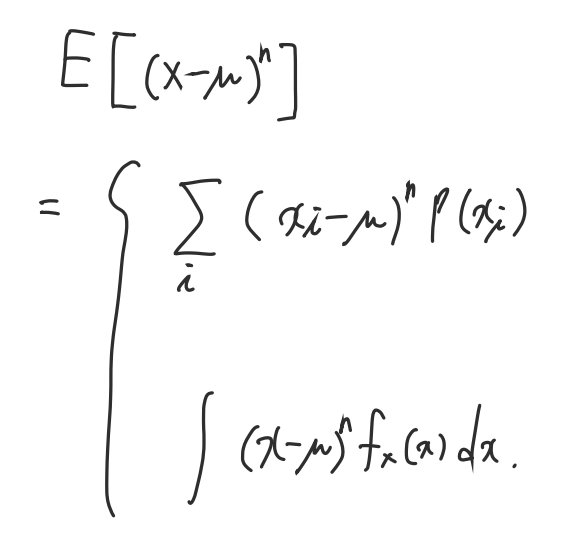 E[(x-μ)^n]
= { ∑_i (x_i-μ)^n p(x_i)
∫ (x-μ)^n f_x(x) dx.